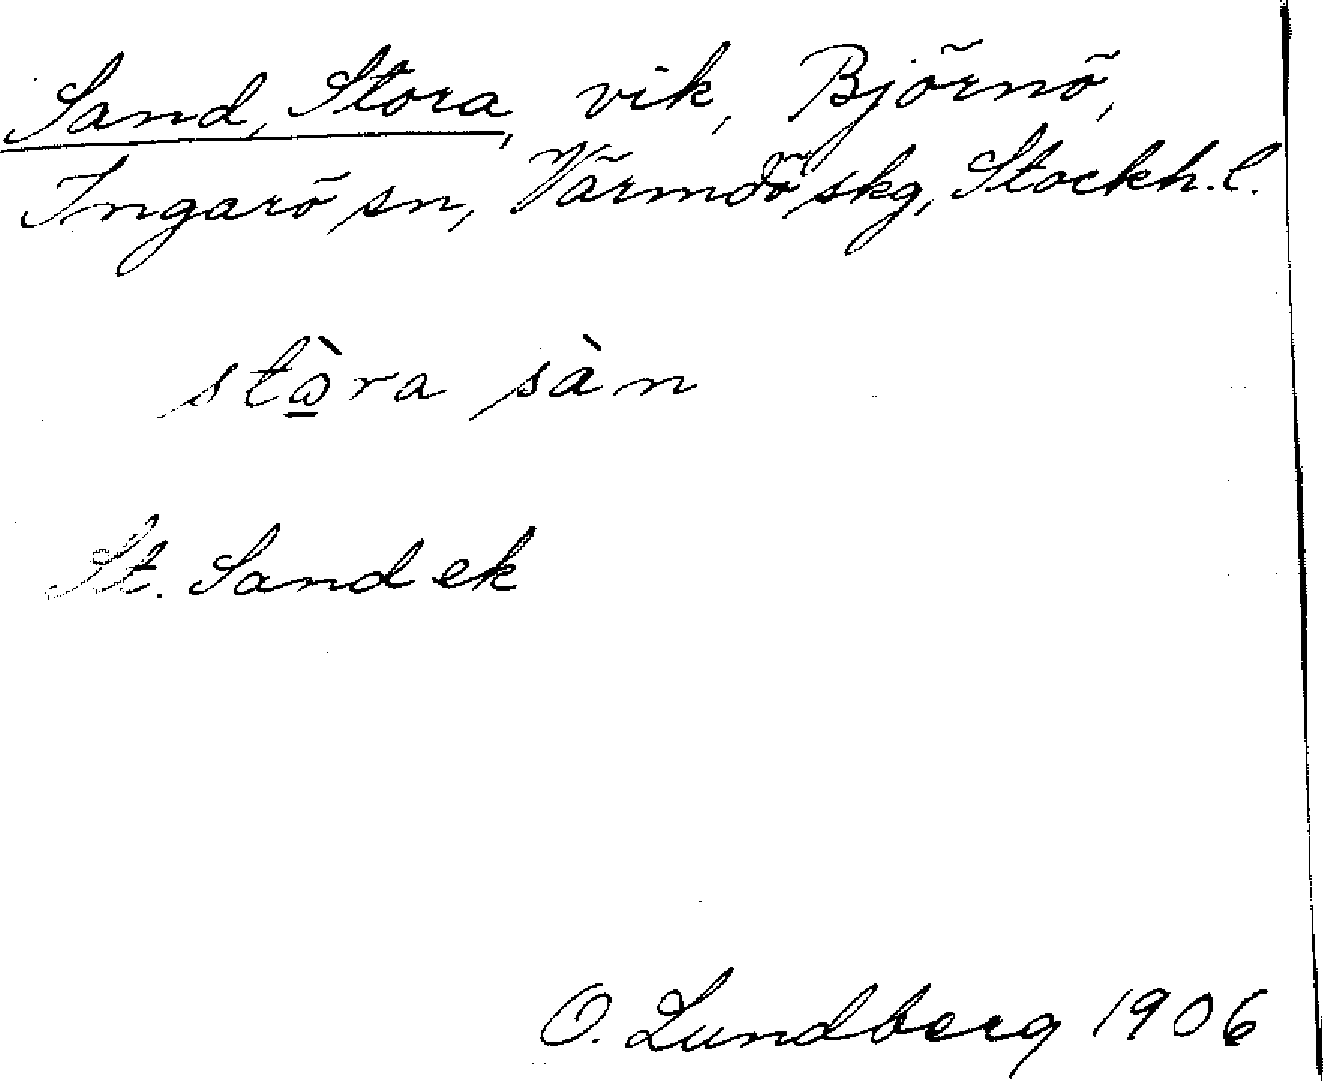 Sand, Stora, vik, Björnö,
Ingarö sn, Värmdö skg, Stockh. l.
stò̲ra sàn
St. Sand ek
O. Lundberg 1906